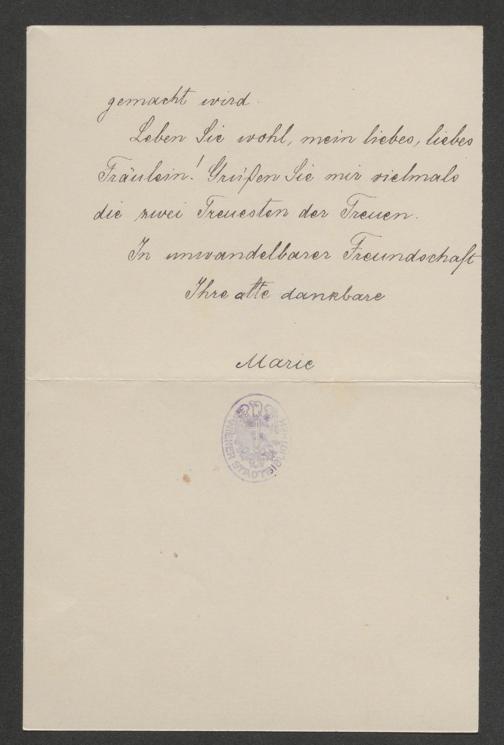 gemacht wird.
Leben Sie wohl, mein liebes, liebes
Fräulein! Grüßen Sie mir vielmals
die zwei Treuesten der Treuen.
In unwandelbarer Freundschaft
Ihre alte dankbare
Marie
WIENER STADTBIBLIOTHEK